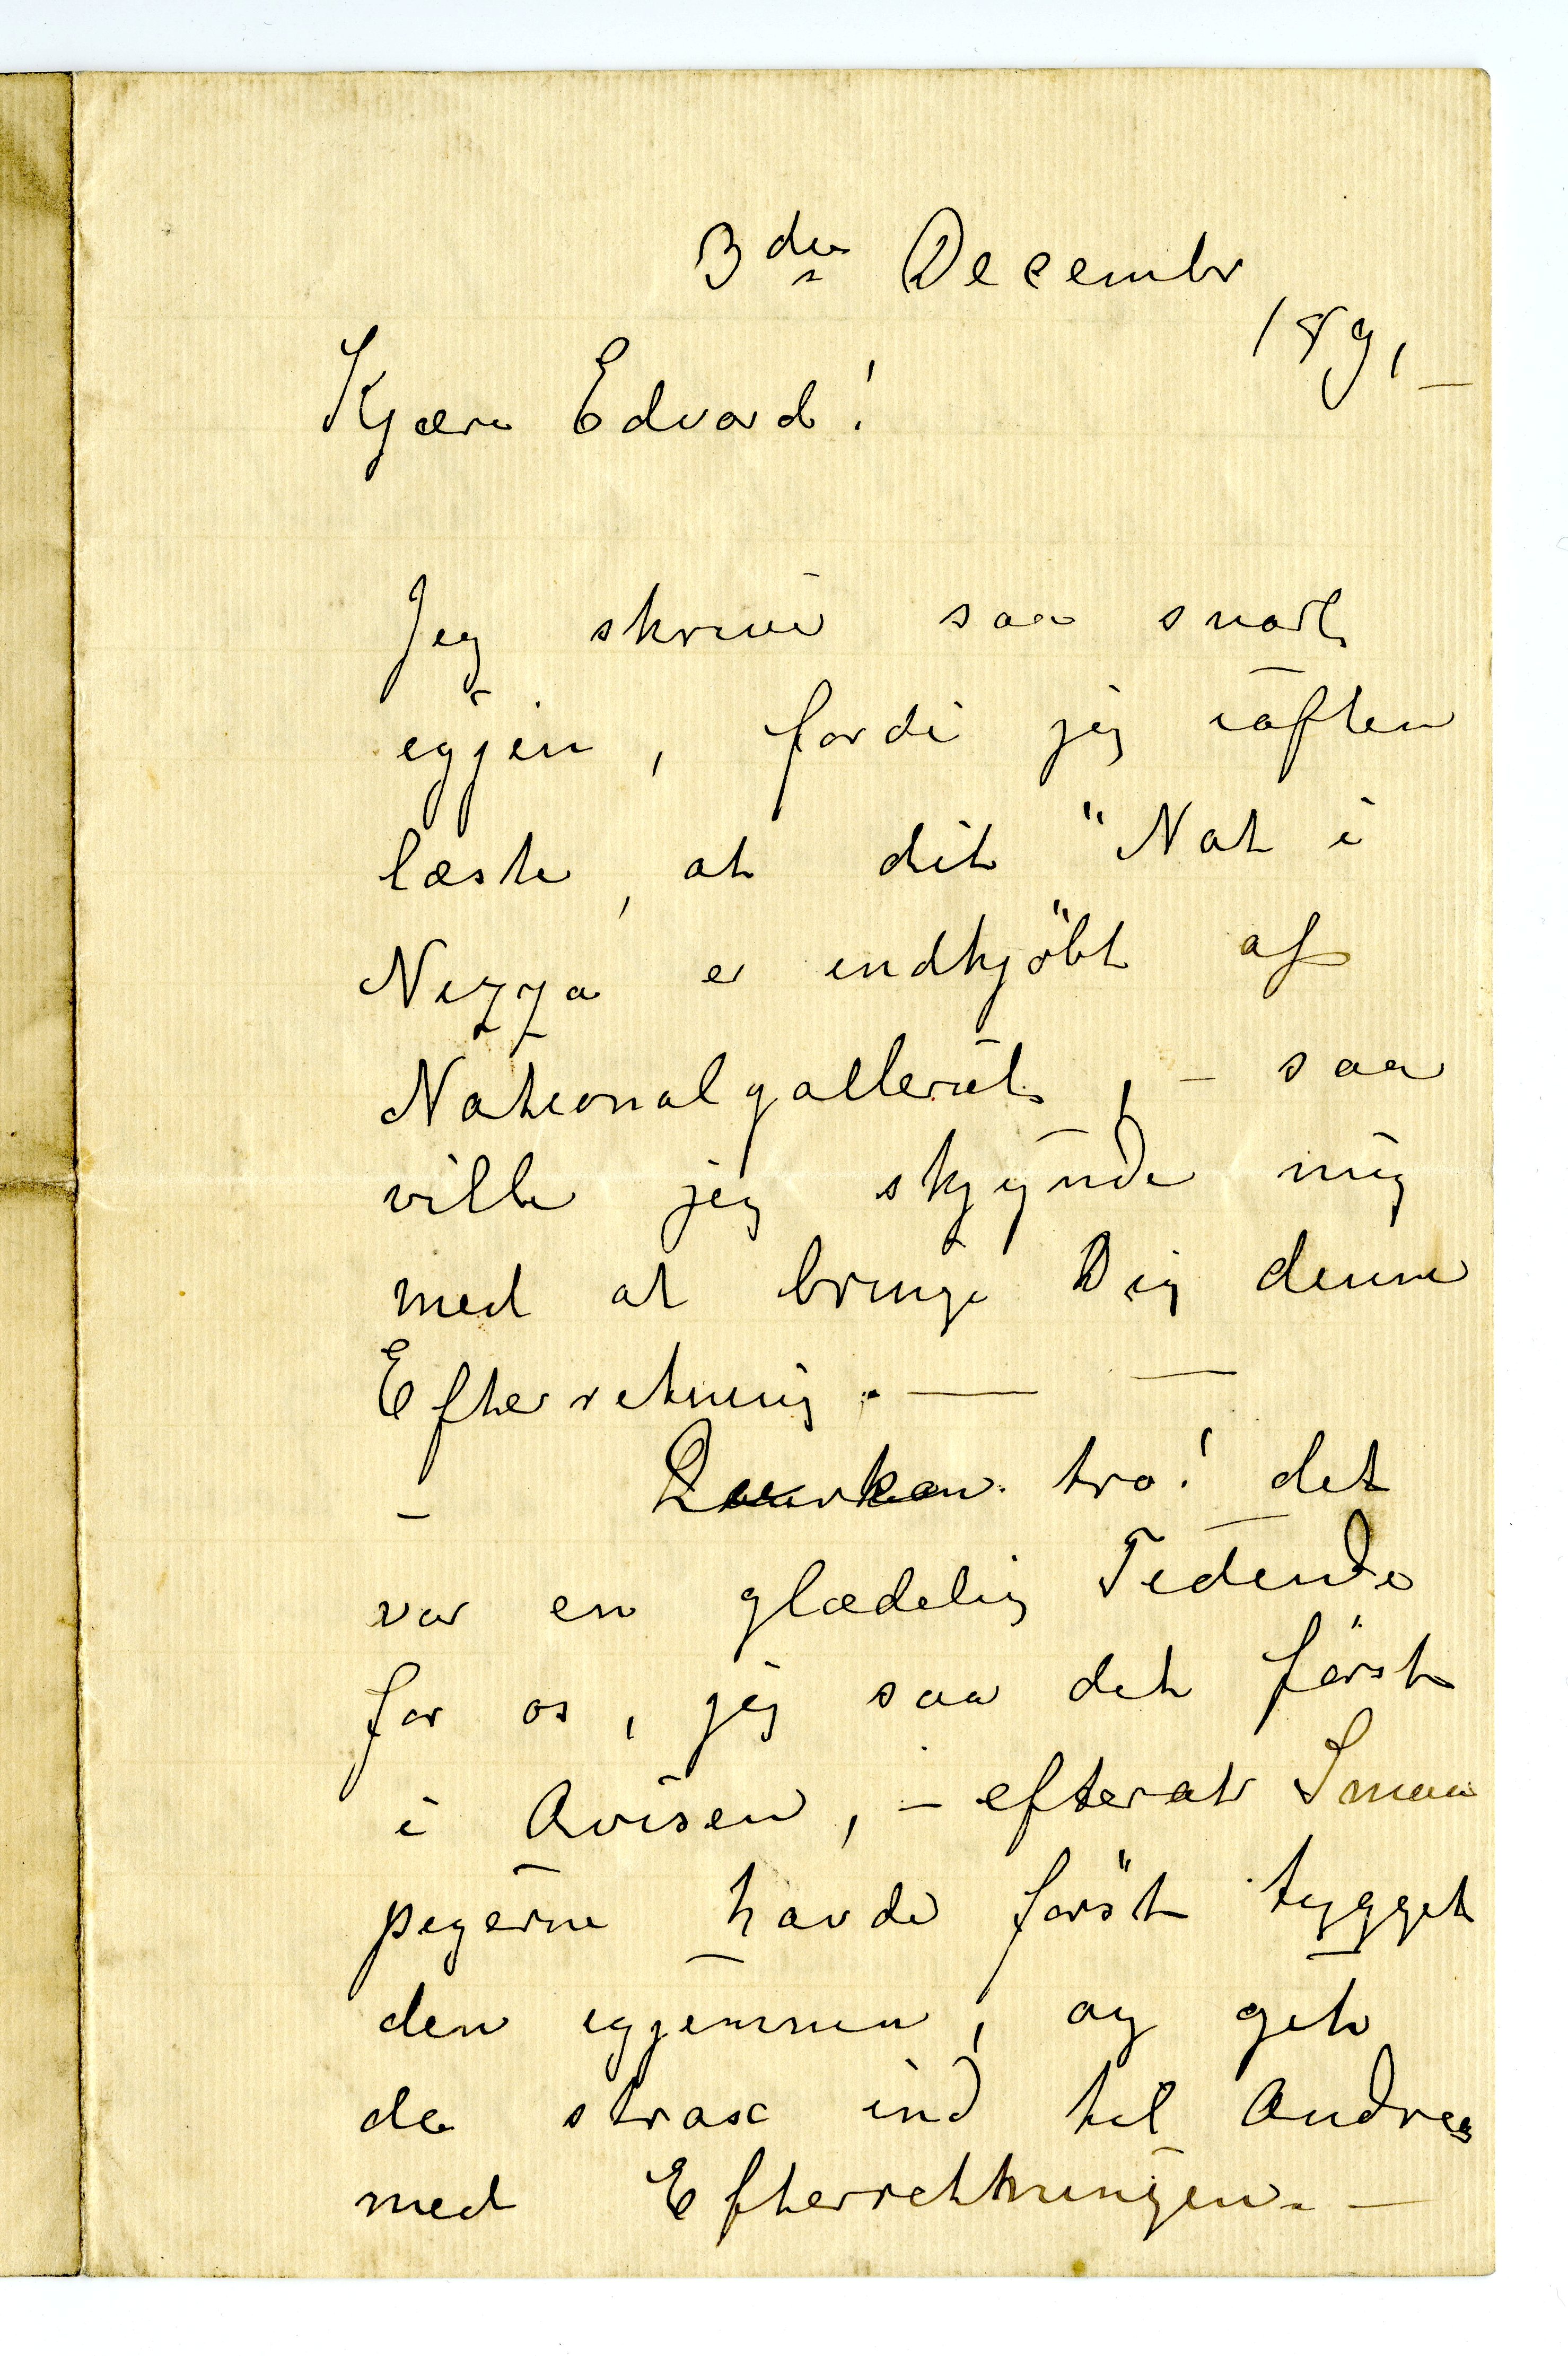 3die Decembr
1891 –
Kjære Edvard!
Jeg skriver saa snart
igjen, fordi jeg iaften
læste, at dit "Nat i
Nizza er indkjöbt af
Nationalgalleriet, – saa
vilde jeg skjynde mig
med at bringe Dig denne
Efterretning. — —
– tro! det
var en glædelig Tidende
for os, jeg saa det först
i Avisen, – efterat Smaa
pigerne havde först tygget
den igjennem, og gik
da strax ind til Andreas
med Efterretningen. –